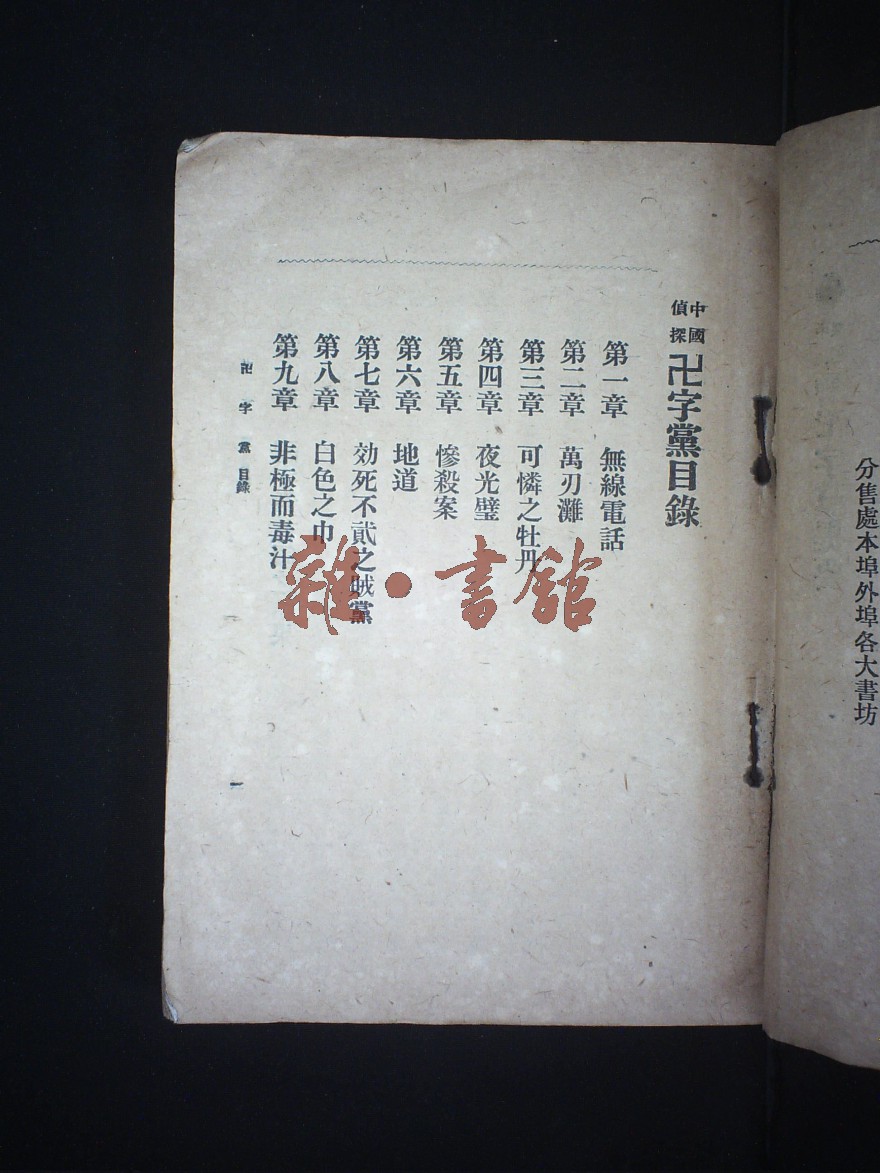 分售處本埠外埠各大書坊
中國偵探 卍字黨目錄
第一章 無線電話
第二章 萬刃灘
第三章 可憐之牡丹
第四章 夜光璧
第五章 慘殺案
第六章 地道
第七章 効死不貳之賊黨
第八章 白色之巾
第九章 非極而毒汁
卍字黨目錄
一
雜·書館